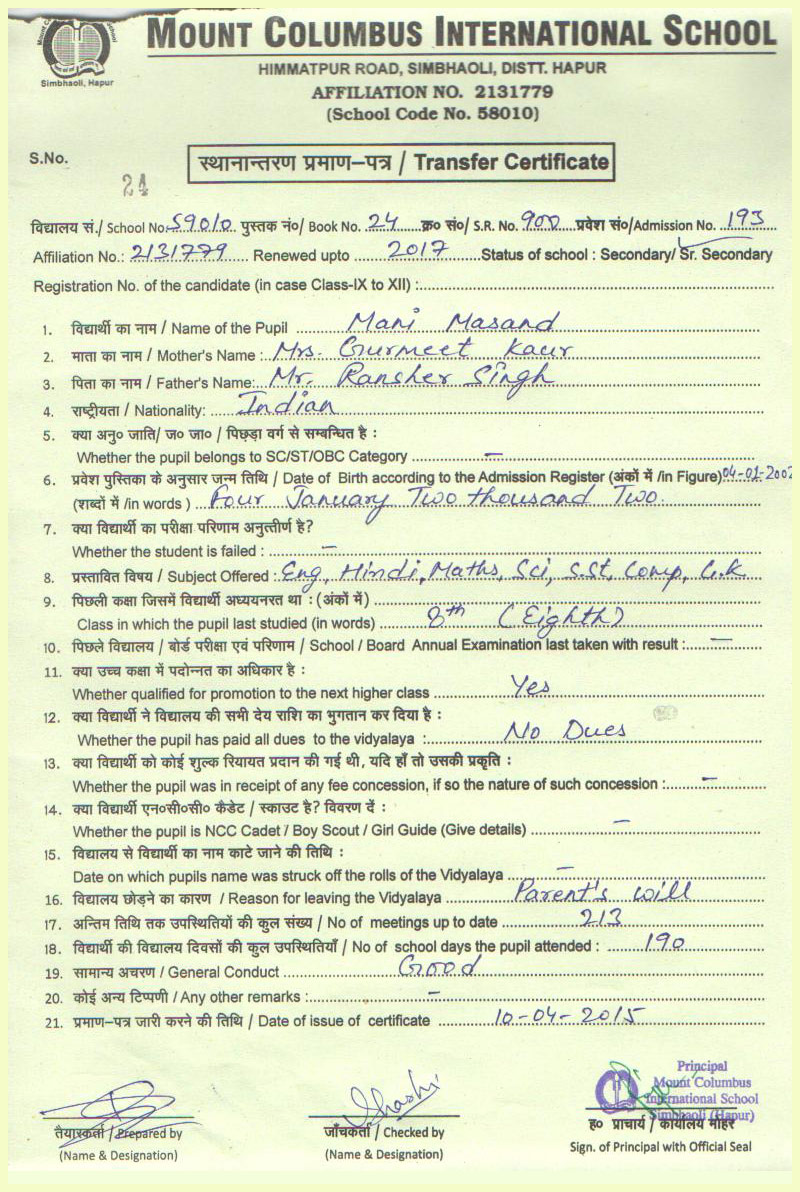 Simbhaoli, Hapur
MOUNT COLUMBUS INTERNATIONAL SCHOOL
HIMMATPUR ROAD, SIMBHAOLI, DISTT. HAPUR
AFFILIATION NO. 2131779
(School Code No. 58010)
S.No. 24
स्थानान्तरण प्रमाण–पत्र / Transfer Certificate
विद्यालय सं./ School No. 59010 पुस्तक नं०/ Book No. 24 क्र० सं०/ S.R. No. 900 प्रवेश सं०/Admission No. 193
Affiliation No.: 2131779 Renewed upto 2017 Status of school : Secondary/ Sr. Secondary
Registration No. of the candidate (in case Class-IX to XII) :
1. विद्यार्थी का नाम / Name of the Pupil Mani Masand
2. माता का नाम / Mother's Name : Mrs. Gurmeet Kaur
3. पिता का नाम / Father's Name: Mr. Ransher Singh
4. राष्ट्रीयता / Nationality: Indian
5. क्या अनु० जाति/ ज० जा० / पिछड़ा वर्ग से सम्बन्धित है :
Whether the pupil belongs to SC/ST/OBC Category —
6. प्रवेश पुस्तिका के अनुसार जन्म तिथि / Date of Birth according to the Admission Register (अंकों में /in Figure) 04-01-2002
(शब्दों में /in words ) Four January Two thousand Two.
7. क्या विद्यार्थी का परीक्षा परिणाम अनुत्तीर्ण है?
Whether the student is failed : —
8. प्रस्तावित विषय / Subject Offered : Eng, Hindi, Maths, Sci, S.St, Comp, G.K
9. पिछली कक्षा जिसमें विद्यार्थी अध्ययनरत था : (अंकों में)
Class in which the pupil last studied (in words) 8th (Eighth)
10. पिछले विद्यालय / बोर्ड परीक्षा एवं परिणाम / School / Board Annual Examination last taken with result : —
11. क्या उच्च कक्षा में पदोन्नत का अधिकार है :
Whether qualified for promotion to the next higher class Yes
12. क्या विद्यार्थी ने विद्यालय की सभी देय राशि का भुगतान कर दिया है :
Whether the pupil has paid all dues to the vidyalaya : No Dues
13. क्या विद्यार्थी को कोई शुल्क रियायत प्रदान की गई थी, यदि हाँ तो उसकी प्रकृति :
Whether the pupil was in receipt of any fee concession, if so the nature of such concession : —
14. क्या विद्यार्थी एन०सी०सी० कैडेट / स्काउट है? विवरण दें :
Whether the pupil is NCC Cadet / Boy Scout / Girl Guide (Give details) —
15. विद्यालय से विद्यार्थी का नाम काटे जाने की तिथि :
Date on which pupils name was struck off the rolls of the Vidyalaya —
16. विद्यालय छोड़ने का कारण / Reason for leaving the Vidyalaya Parent's will
17. अन्तिम तिथि तक उपस्थितियों की कुल संख्य / No of meetings up to date 213
18. विद्यार्थी की विद्यालय दिवसों की कुल उपस्थितियाँ / No of school days the pupil attended : 190
19. सामान्य अचरण / General Conduct Good
20. कोई अन्य टिप्पणी / Any other remarks : —
21. प्रमाण–पत्र जारी करने की तिथि / Date of issue of certificate 10-04-2015
Principal
Mount Columbus
International School
Simbhaoli (Hapur)
Shashi
तैयारकर्ता / Prepared by
(Name & Designation)
जाँचकर्ता / Checked by
(Name & Designation)
ह० प्राचार्य / कार्यालय मोहर
Sign. of Principal with Official Seal